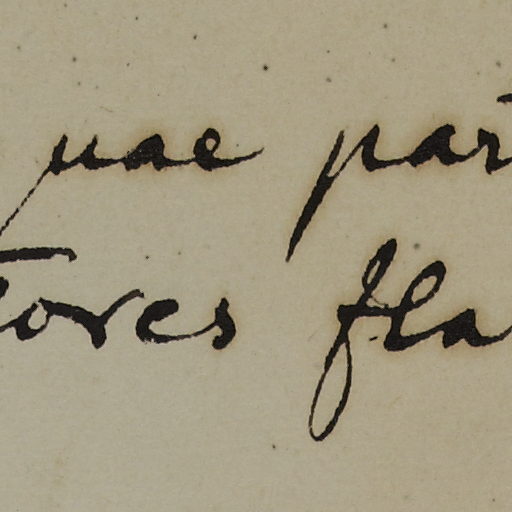 quae par
tores fla